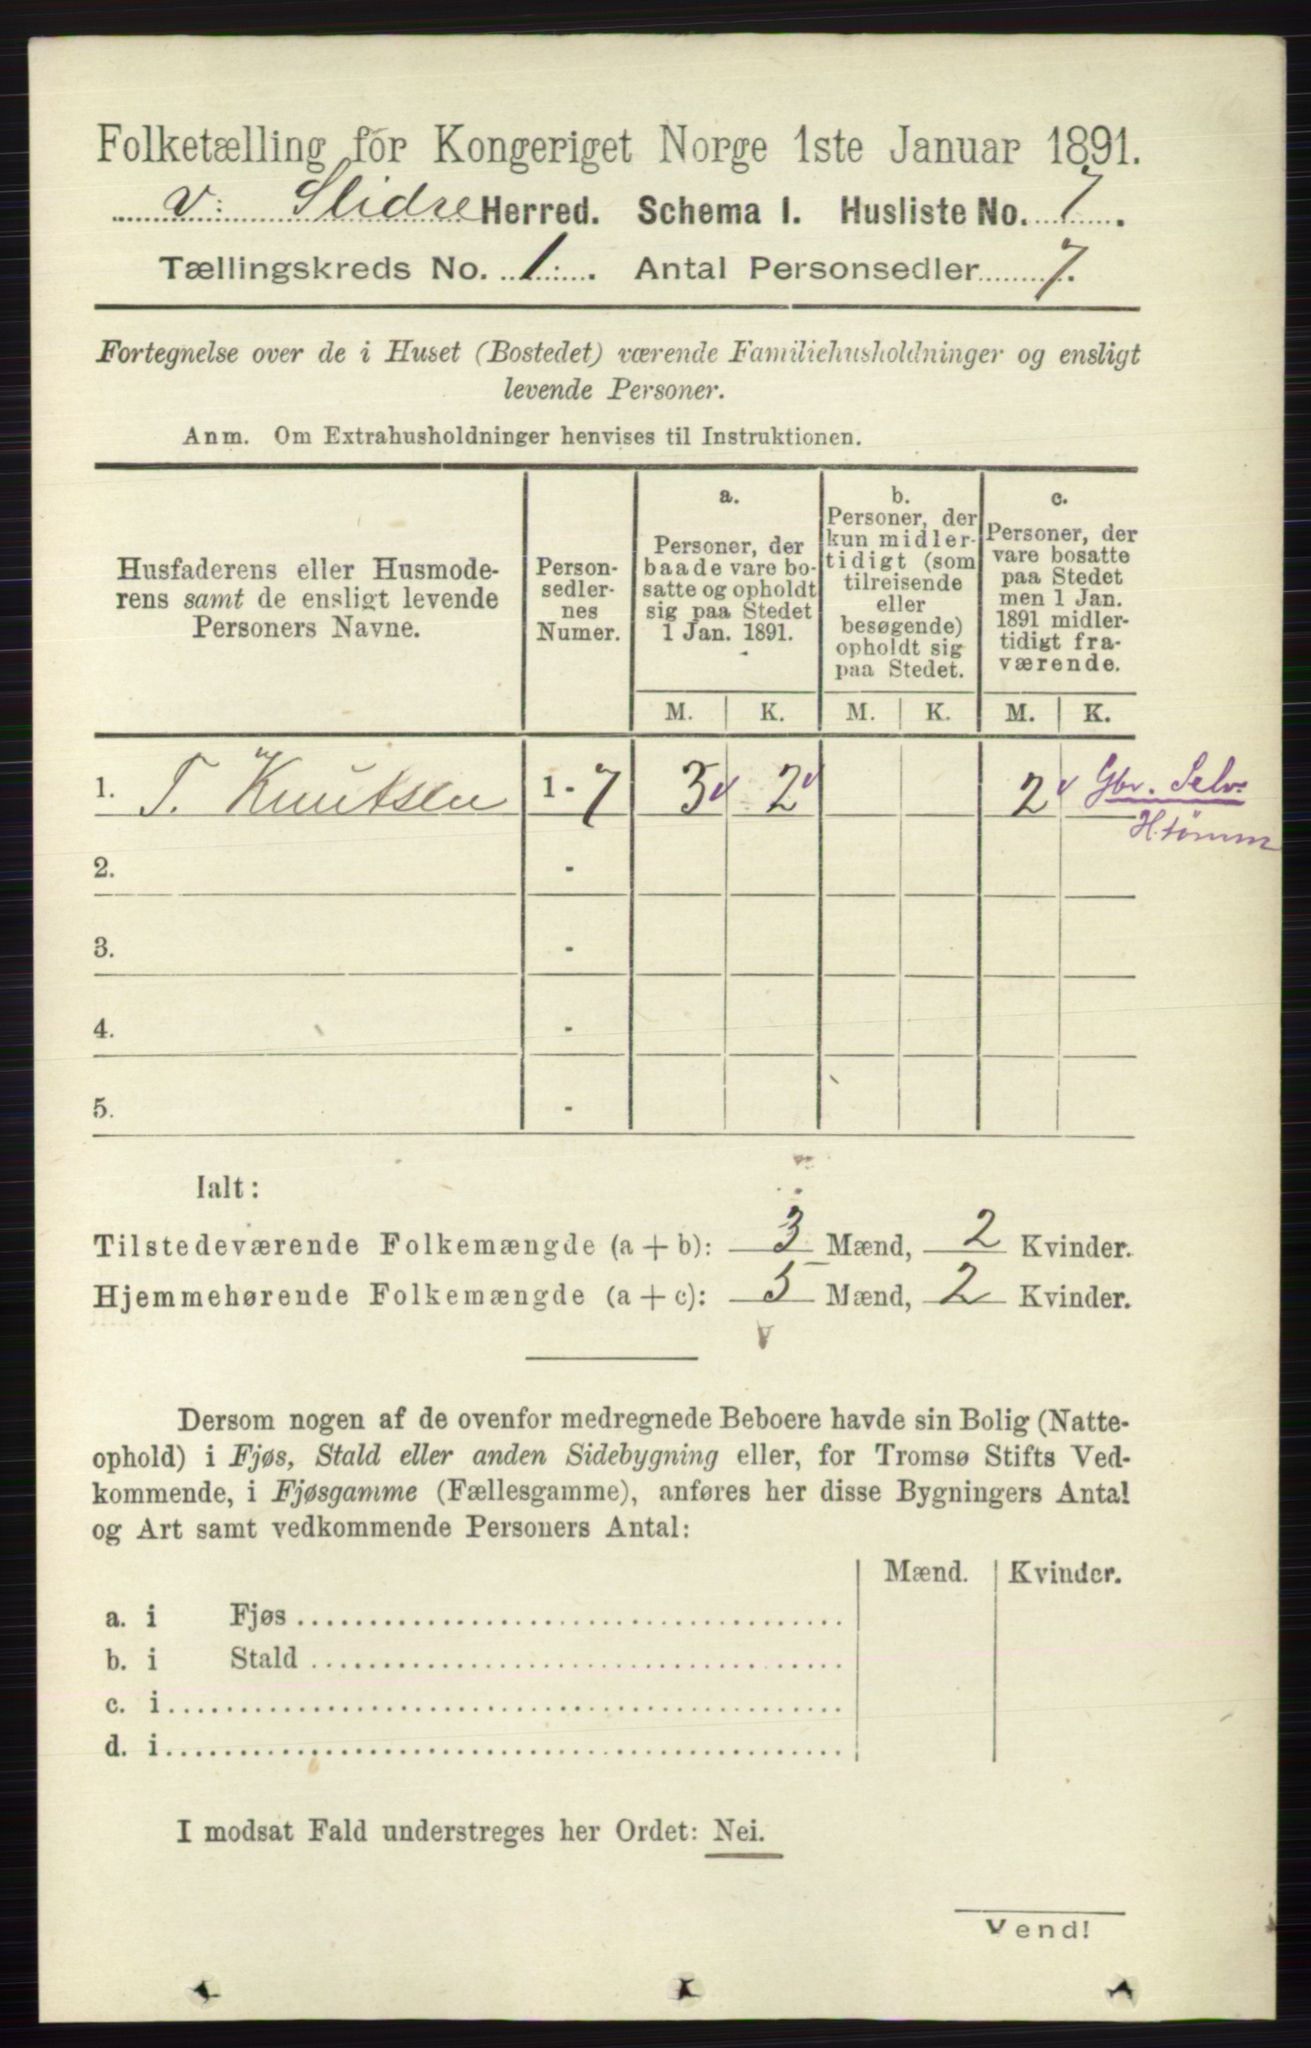 Folketælling for Kongeriget Norge 1ste Januar 1891.
V: Slidre Herred. Schema I. Husliste No. 7.
Tællingskreds No. 1. Antal Personsedler 7.
Fortegnelse over de i Huset (Bostedet) værende Familiehusholdninger og ensligt
levende Personer.
Anm. Om Extrahusholdninger henvises til Instruktionen.
Husfaderens eller Husmode-
rens samt de ensligt levende
Personers Navne.
Person-
sedler-
nes
Numer.
a.
Personer, der
baade vare bo-
satte og opholdt
sig paa Stedet
1 Jan. 1891.
b.
Personer, der
kun midler-
tidigt (som
tilreisende
eller
besøgende)
opholdt sig
paa Stedet.
c.
Personer, der
vare bosatte
paa Stedet
men 1 Jan.
1891 midler-
tidigt fra-
værende.
M. K. M. K. M. K.
1. T. Knutsen 1 - 7 3 2 2 Gbr. Selv:
H.tømm
2. -
3. -
4. -
5. -
Ialt:
Tilstedeværende Folkemængde (a + b): 3 Mænd, 2 Kvinder.
Hjemmehørende Folkemængde (a + c): 5 Mænd, 2 Kvinder.
Dersom nogen af de ovenfor medregnede Beboere havde sin Bolig (Natte-
ophold) i Fjøs, Stald eller anden Sidebygning eller, for Tromsø Stifts Ved-
kommende, i Fjøsgamme (Fællesgamme), anføres her disse Bygningers Antal
og Art samt vedkommende Personers Antal:
Mænd. Kvinder.
a. i Fjøs
b. i Stald
c. i
d. i
I modsat Fald understreges her Ordet: Nei.
Vend!